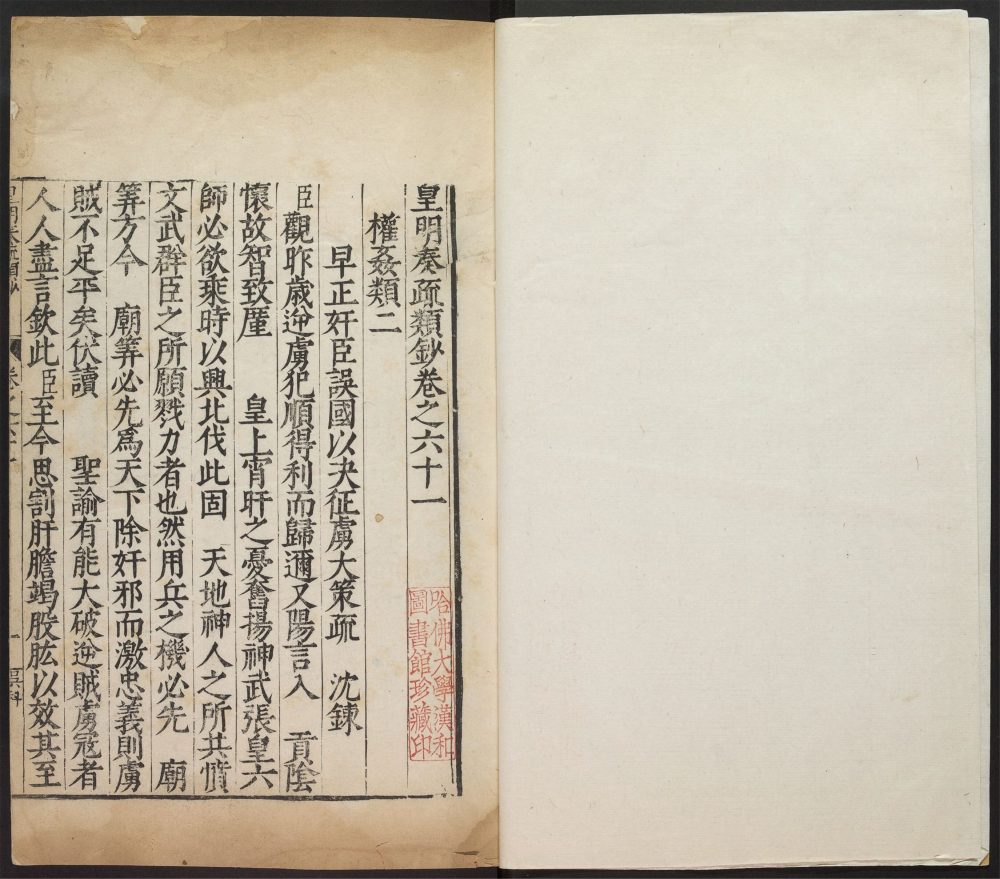 皇明奏疏類鈔卷之六十一
權姦類二
早正奸臣誤國以決征虜大策疏 沈鍊
臣觀昨歳逆虜犯順得利而歸邇又陽言入 貢陰
懷故智致廑 皇上宵旰之憂奮揚神武張皇六
師必欲乘時以興北伐此固 天地神人之所共憤
文武群臣之所願戮力者也然用兵之機必先 廟
筭方今 廟筭必先爲天下除奸邪而激忠義則虜
賊不足平矣伏讀 聖諭有能大破逆賊虜冦者
人人盡言欽此臣至今思割肝膽竭股肱以效其至
哈佛大學漢和
圖書館珍藏印